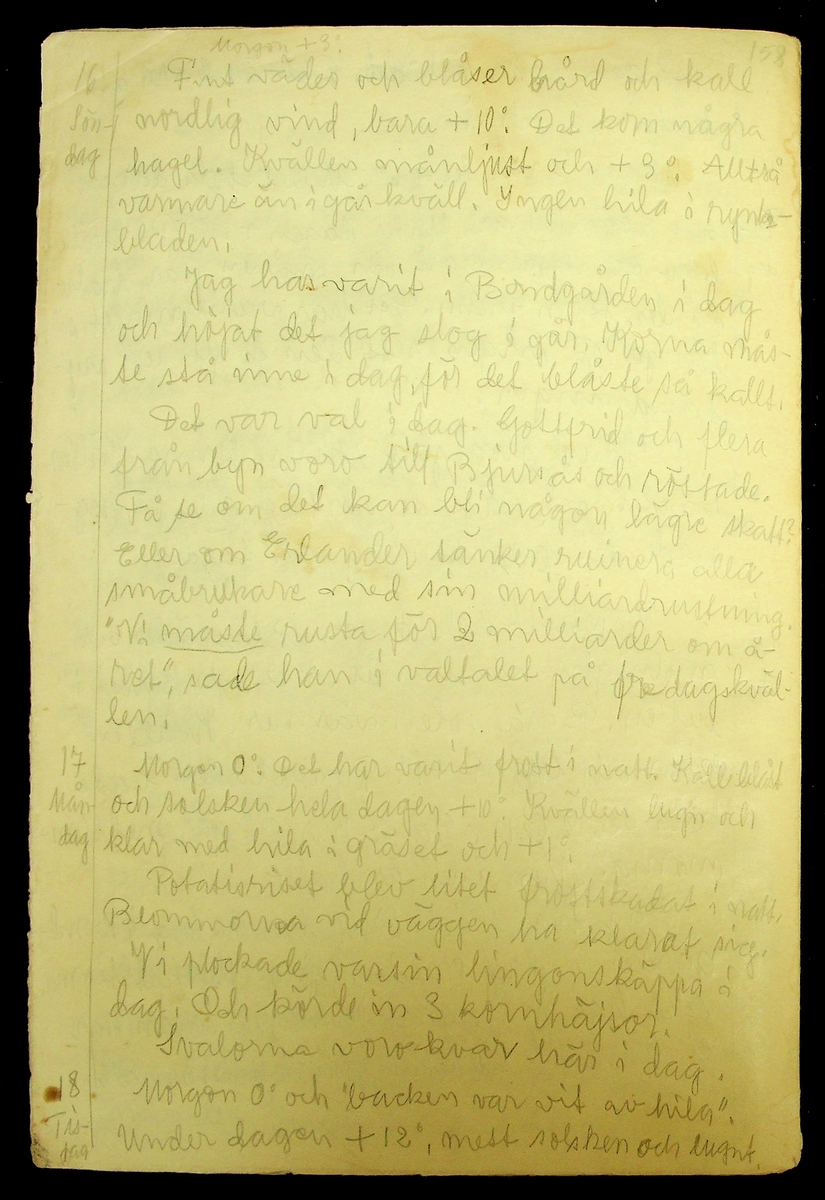 158
Morgon +3°.
16 Fint väder och blåser hård och kall
Sön- nordlig vind, bara +10°. Det kom några
dag hagel. Kvällen månljust och +3°. Alltså
varmare än i går kväll. Yngen hila i rynk-
bladen.
Jag har varit i Bondgården i dag
och höjat det jag slog i går. Korna mås-
te stå inne i dag, för det blåste så kallt.
Det var val i dag. Gottfrid och flera
från byn voro till Bjursås och röstade.
Få se om det kan bli någon lägre skatt?
Eller om Erlander tänker ruinera alla
småbrukare med sin milliardrustning.
"Vi måste rusta för 2 milliarder om å-
ret", sade han i valtalet på fredagskväl-
len.
17 Morgon 0°. Det har varit frost i natt. Kall blåst
Mån- och solsken hela dagen +10°. Kvällen lugn och
dag klar med hila i gräset och +1°.
Potatisriset blev litet frostskadat i natt.
Blommorna vid väggen ha klarat sig.
Vi plockade varsin lingonskäppa i
dag. Och körde in 3 kornhäjsor.
Svalorna voro kvar här i dag.
18 Morgon 0° och "backen var vit av hila".
Tis- Under dagen +12°, mest solsken och lugnt.
dag